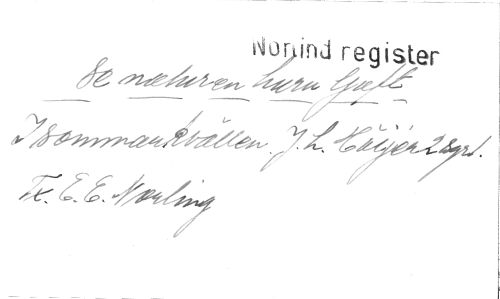 Nonind register
Se naturen huru ljuft
I sommarkvällen. J. L. Höijer 2 agr.
Tx. E. E. Norling